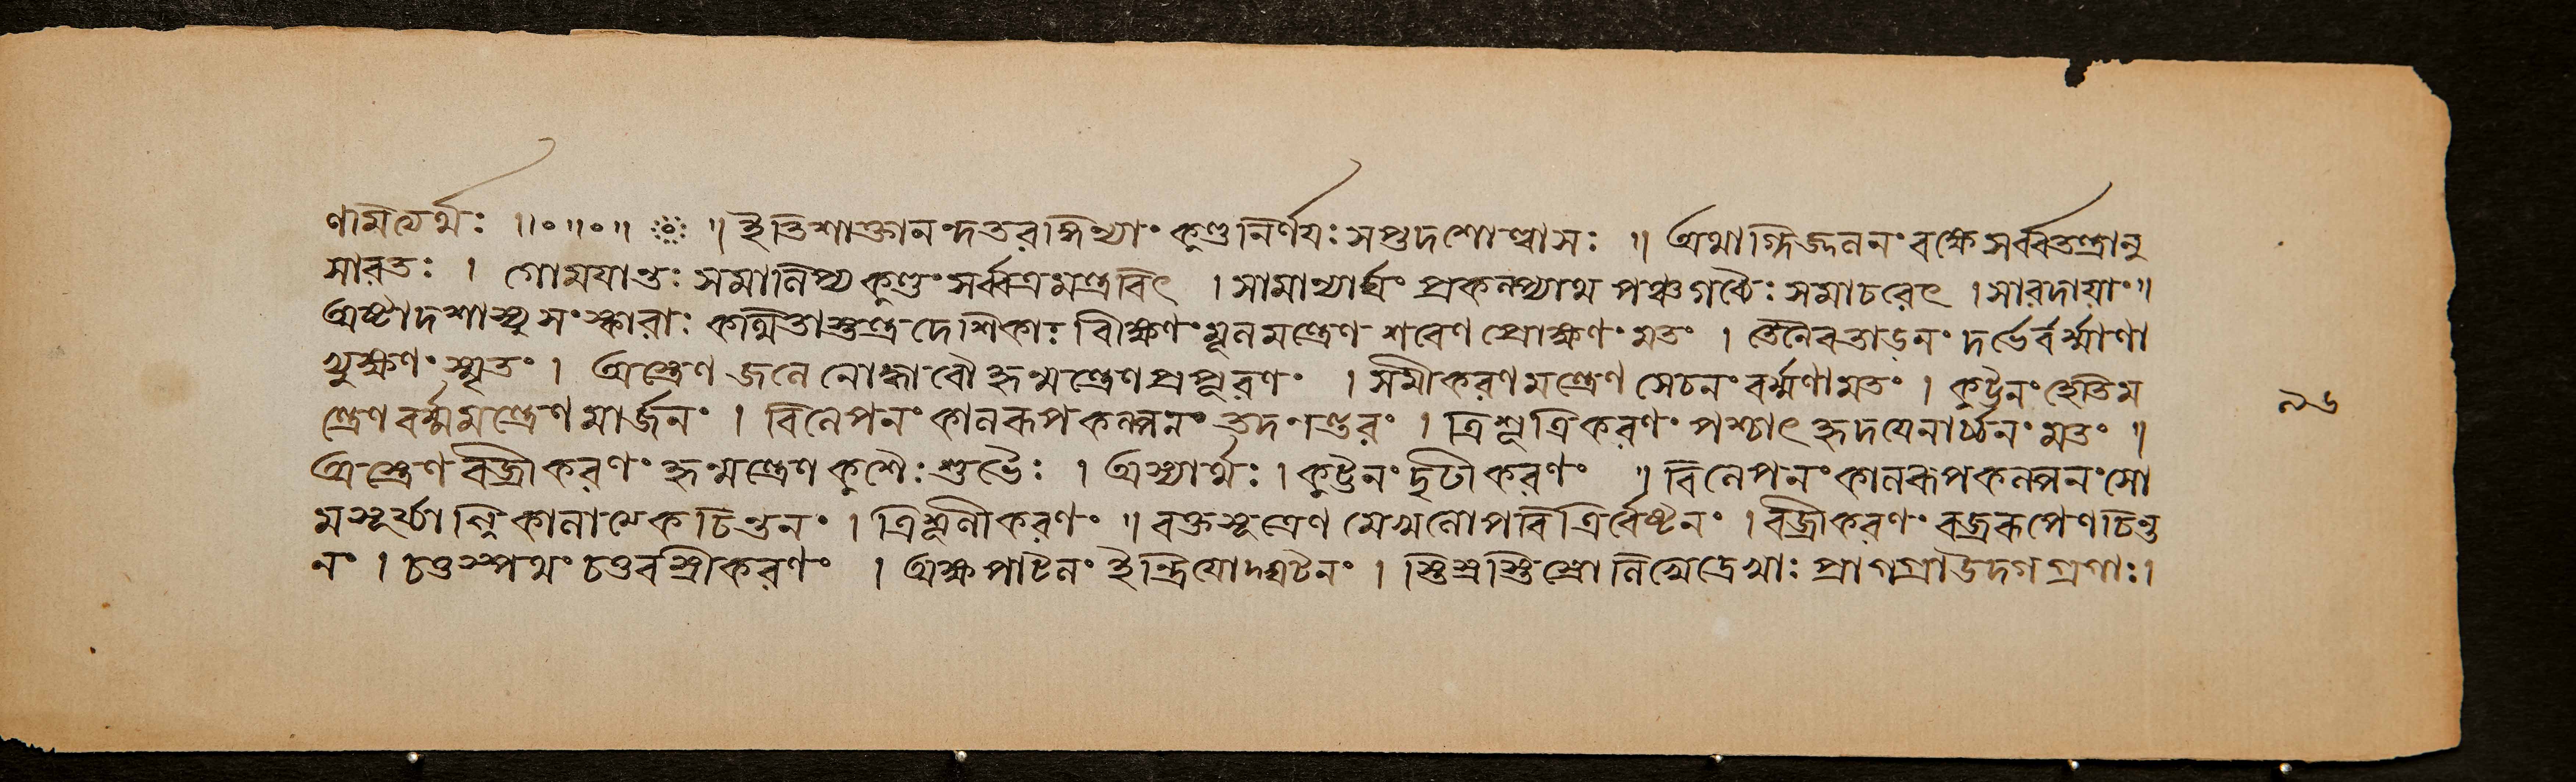 ণামিত্যর্থঃ ॥০॥০॥ ॥ ইতিশাক্তানংদতরঙ্গিণ্যাং কুণ্ডনির্ণয়ঃ সপ্তদশোল্লাসঃ ॥ অথাগ্নিজননং বক্ষে সর্ব্বতন্ত্রানু
সারতঃ । গোময়ান্তঃ সমালিপ্য কুণ্ডং সর্ব্বত্রমন্ত্রবিৎ । সামান্যার্ঘ্যং প্রকল্প্যাথ পঞ্চগব্যৈঃ সমাচরেৎ । সারদায়াং ॥
অষ্টাদশাস্যু সংস্কারাঃ কথিতাস্তন্ত্রদেশিকাঃ বিক্ষণং মূলমন্ত্রেণ শরেণ প্রোক্ষণং মতং । তেনৈবতাড়নং দর্ভের্বর্ম্মাণা
ভ্যুক্ষণং স্মৃতং । অস্ত্রেণ জলে নোদ্ধারৌ হৃন্মন্ত্রেণপ্রপূরণং । সমীকরণমন্ত্রেণ সেচনং বর্ম্মণামতং । কুট্টনং হেতিম
ন্ত্রেণ বর্ম্মমন্ত্রেণ মার্জ্জনং । বিলেপনং কালরূপকল্পনং তদণন্তরং । ত্রিশূত্রিকরণং পশ্চাৎ হৃদয়েনার্চ্চনং মতং ।
অস্ত্রেণ বজ্রীকরণং হৃন্মন্ত্রেণ কুশৈঃ শুভৈঃ । অস্যার্থঃ । কুট্টনং দৃঢীকরণং ॥ বিলেপনং কালরূপকলপনং সো
মসূর্য্যাগ্নিকালানামেকচিন্তনং । ত্রিশূণীকরণং ॥ রক্তসূত্রেণ মেখলোপরিত্রির্বেষ্টনং । বজ্রীকরণং বজ্ররূপেণচিন্ত
নং । চতুস্পথং চতুরস্রীকরণং । অক্ষপাটনং ইন্দ্রিয়োদ্ঘটনং । স্তিস্রস্তিস্রো লিখেদ্রেখাঃ প্রাগগ্রাউদগগ্রগাঃ ।
৯৬